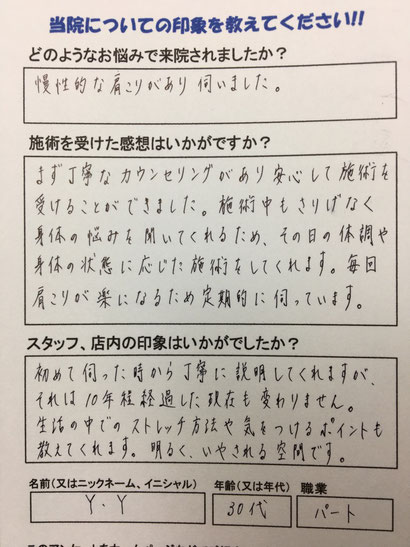 当院についての印象を教えてください!!
どのようなお悩みで来院されましたか？
慢性的な肩こりがあり伺いました。
施術を受けた感想はいかがですか？
まず丁寧なカウンセリングがあり安心して施術を
受けることができました。施術中もさりげなく
身体の悩みを聞いてくれるため、その日の体調や
身体の状態に応じた施術をしてくれます。毎回
肩こりが楽になるため定期的に伺っています。
スタッフ、店内の印象はいかがでしたか？
初めて伺った時から丁寧に説明してくれますが、
それは10年経経過した現在も変わりません。
生活の中でのストレッチ方法や気をつけるポイントも
教えてくれます。明るく、いやされる空間です。
名前(又はニックネーム、イニシャル) 年齢(又は年代) 職業
Y.Y 30代 パート